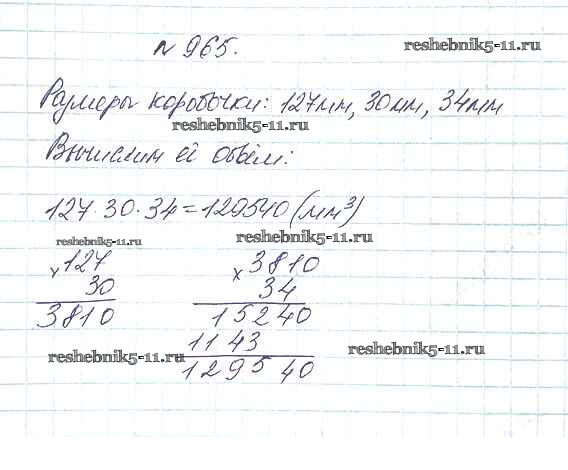 № 965.
reshebnik5-11.ru
Размеры коробочки: 127мм, 30мм, 34мм
reshebnik5-11.ru
Вычислим её объём:
127·30·34=129540 (мм³)
reshebnik5-11.ru reshebnik5-11.ru
x 127 x 3810
30 34
3810 15240
1143
reshebnik5-11.ru reshebnik5-11.ru
129540